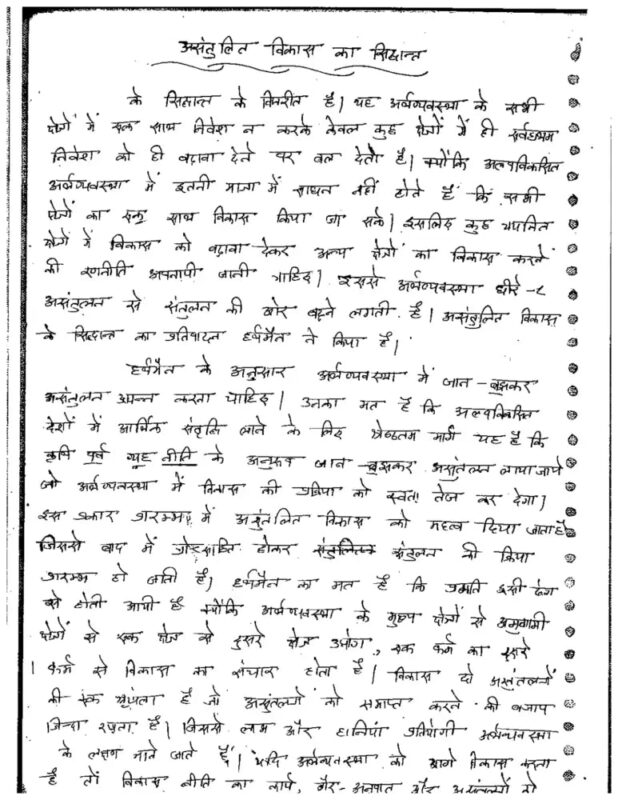 असंतुलित विकास का सिद्धान्त
के सिद्धान्त के विपरीत है। यह अर्थव्यवस्था के सभी
क्षेत्रों में एक साथ निवेश न करके केवल कुछ क्षेत्रों में ही सर्वप्रथम
निवेश को ही बढ़ावा देने पर बल देता है। क्योंकि अल्पविकसित
अर्थव्यवस्था में इतनी मात्रा में साधन नहीं होते हैं कि सभी
क्षेत्रों का एक साथ विकास किया जा सके। इसलिए कुछ चयनित
क्षेत्रों में विकास को बढ़ावा देकर अन्य क्षेत्रों का विकास करने
की रणनीति अपनायी जानी चाहिए। इससे अर्थव्यवस्था धीरे-२
असंतुलन से संतुलन की ओर बढ़ने लगती है। असंतुलित विकास
के सिद्धान्त का प्रतिपादन हर्षमैन ने किया है।
हर्षमैन के अनुसार अर्थव्यवस्था में जान-बूझकर
असंतुलन उत्पन्न करना चाहिए। उनका मत है कि अल्पविकसित
देशों में आर्थिक संवृद्धि लाने के लिए श्रेष्ठतम मार्ग यह है कि
पूर्व नीति के अनुरूप जान-बूझकर असंतुलन लाया जाये
जो अर्थव्यवस्था में विकास की प्रक्रिया को स्वतः तेज कर देगा।
इस प्रकार प्रारम्भ में असंतुलित विकास को महत्व दिया जाता है
जिससे बाद में प्रोत्साहित होकर संतुलन की क्रिया
प्रारम्भ हो जाती है। हर्षमैन का मत है कि प्रगति इसी ढंग
से होती आयी है क्योंकि अर्थव्यवस्था के मुख्य क्षेत्रों से अनुगामी
क्षेत्रों से एक क्षेत्र से दूसरे क्षेत्र उद्योग, एक फर्म का दूसरे
फर्म से विकास का संचार होता है। विकास दो असंतुलनों
की एक श्रृंखला है जो असंतुलनों को समाप्त करने की बजाय
जिन्दा रखता है। जिससे लाभ और हानियां प्रतियोगी अर्थव्यवस्था
के लक्षण माने जाते हैं। यदि अर्थव्यवस्था को आगे विकास करना
है तो विकास नीति का कार्य, गैर-अनुपात और असंतुलनों को